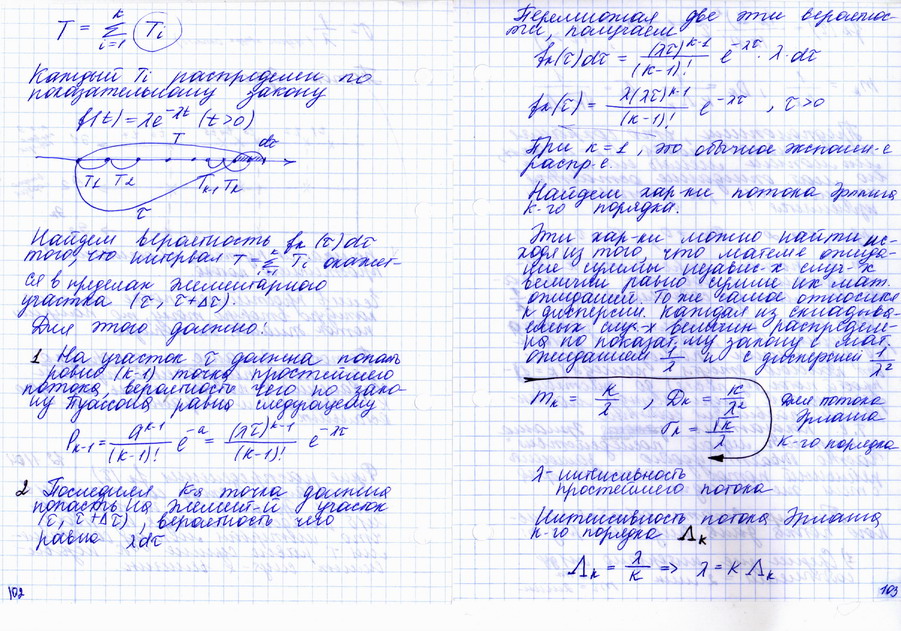 T = Σ_{i=1}^{k} Ti
Каждый Ti распределен по
показательному закону
f(t) = λe^{-λt} (t>0)
T dτ
T1 T2 Tk-1 Tk
τ
Найдем вероятность fk(τ)dτ
того, что интервал T = Σ_{i=1}^{k} Ti окажет-
ся в пределах элементарного
участка (τ, τ+Δτ).
Для этого должно:
1 На участок τ должна попасть
ровно (k-1) точка простейшего
потока, вероятность чего по зако-
ну Пуассона равна следующему
Pk-1 = a^{k-1}/(k-1)! e^{-a} = (λτ)^{k-1}/(k-1)! e^{-λτ}
2 Последняя k-я точка должна
попасть на элемент-й участок
(τ, τ+Δτ), вероятность чего
равна λdτ
102
Перемножая две эти вероятнос-
ти, получаем
fk(τ)dτ = (λτ)^{k-1}/(k-1)! e^{-λτ} · λ·dτ
fk(τ) = λ(λτ)^{k-1}/(k-1)! e^{-λτ}, τ>0
При k=1, это обычное экспонен-е
распр-е.
Найдем хар-ки потока Эрланга
k-го порядка.
Эти хар-ки можно найти ис-
ходя из того, что матем. ожида-
ние суммы независ-х случ-х
величин равно сумме их мат.
ожиданий. То же самое относится
к дисперсии. Каждая из складыва-
емых случ-х величин распределе-
на по показат. му закону с мат.
ожиданием 1/λ и с дисперсией 1/λ²
mk = k/λ, Dk = k/λ²
σk = √k/λ
Для потока
Эрланга
k-го порядка
λ - интенсивность
простейшего потока
Интенсивность потока Эрланга
k-го порядка Λk
Λk = λ/k => λ = k Λk
103